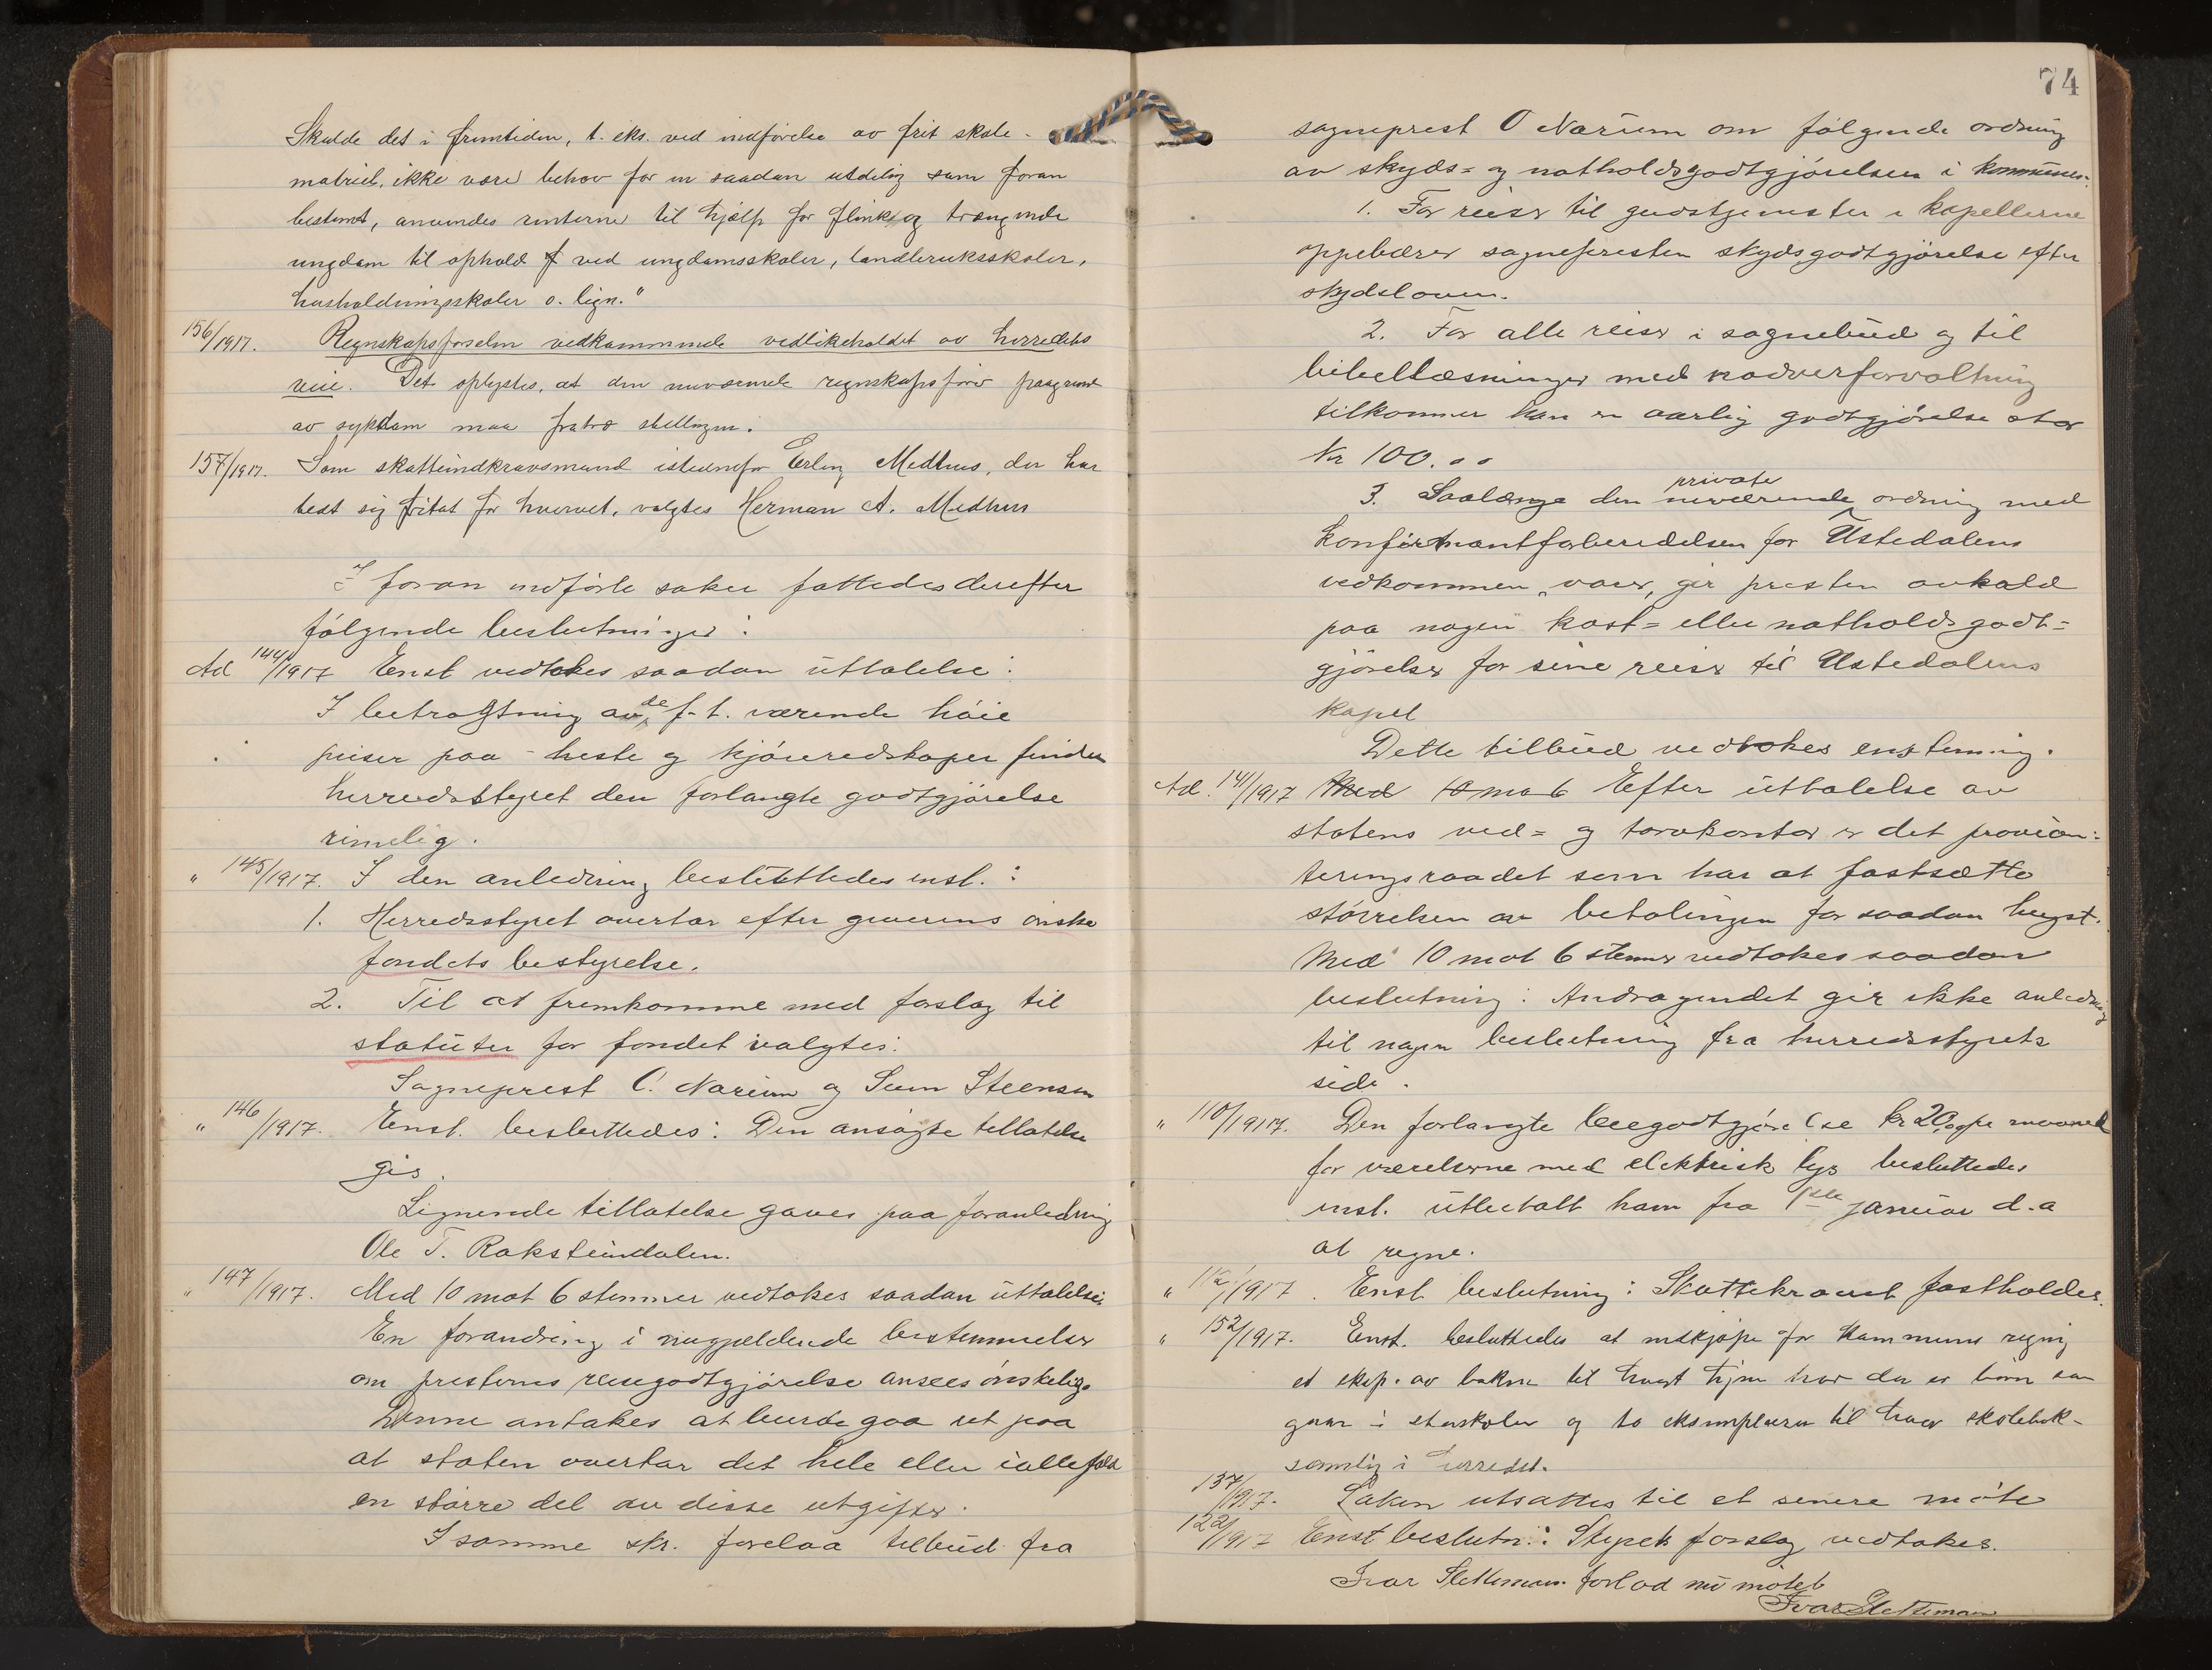 Skulde det i fremtiden, t. eks. ved indførelse av frit skole-
matriel, ikke være behov for en saadan utdeling som foran
bestemt, anvendes renterne til hjælp for flinke og trængende
ungdom til ophold ved ungdomsskoler, landbruksskoler,
husholdningsskoler o. lign."
156/1917. Regnskapsførselen vedkommende vedlikeholdet av herredets
veie. Det oplystes, at den nuværende regnskapsfører paagrund
av sykdom maa fratræ stillingen.
157/1917. Som skatteindkrævsmand istedenfor Erling Medhus, der har
bedt sig fritat for hvervet, valgtes Herman A. Medhus
I foran indførte saker fattedes derefter
følgende beslutninger:
Ad 144/1917 Enst vedtokes saadan uttalelse:
I betragtning av de f. t. værende høie
priser paa heste og kjøreredskaper finder
herredsstyret den forlangte godtgjørelse
rimelig.
" 145/1917. I den anledning besluttedes enst.:
1. Herredsstyret overtar efter giverens ønske
fondets bestyrelse.
2. Til at fremkomme med forslag til
statuter for fondet valgtes:
Sogneprest O. Nærum og Steensen
" 146/1917. Enst. besluttedes: Den ansøgte tillatelse
gis.
Lignende tillatelse gaves paa foranledning
Ole T. Raksteindalen.
" 147/1917. Med 10 mot 6 stemmer vedtokes saadan uttalelse:
En forandring i nugjældende bestemmelser
om presternes reisegodtgjørelse ansees ønskelig.
Denne antakes at burde gaa ut paa
at staten overtar det hele eller iallefald
en større del av disse utgifter.
I samme skr. forelaa tilbud fra
74
sogneprest O Nærum om følgende ordning
av skyds- og natholdsgodtgjørelsen i kommunen:
1. For reiser til gudstjenester i kapellerne
oppebærer sognepresten skydsgodtgjørelse efter
skydsloven.
2. For alle reiser i sognebud og til
bibellæsninger med nadverforvaltning
tilkommer han en aarlig godtgjørelse stor
kr 100.00
3. Saalænge den nuværende private ordning med
konfirmantforberedelsen for Ustedalens
vedkommen, varer, gir presten avkald
paa nogen kost- eller natholdsgodt-
gjørelser for sine reiser til Ustedalens
kapel
Dette tilbud vedtokes enstemmig.
Ad. 141/1917 Med 10 mot 6 Efter uttalelse av
statens ved- og torvkontor er det provian-
teringsraadet som har at fastsætte
størrelsen av betalingen for saadan hugst.
Med 10 mot 6 stemmer vedtokes saadan
beslutning: Andragendet gir ikke anledning
til nogen beslutning fra herredsstyrets
side.
" 110/1917. Den forlangte leiegodtgjørelse kr 20,00 pr maaned
for værelserne med elektrisk lys besluttedes
enst. utbetalt ham fra 1ste januar d.a
at regne.
" 112/1917. Enst beslutning: Skattekravet fastholdes.
" 152/1917. Enst. besluttedes at indkjøpe for kommunens regning
et eksp. av boken til hvert hjem hvor der er barn som
gaar i storskolen og to eksemplarer til hver skolebok-
samling i herredet.
137/1917. Saken utsattes til et senere møte
122/1917 Enst beslutn.: Styrets forslag vedtokes.
Ivar Slettemoen forlod nu møtet
Ivar Slettemoen